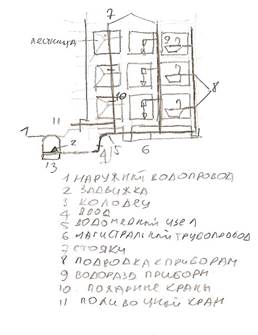 7
ЛЕСТНИЦА
9
10
8
11
1
2
13
4
5
6
1 НАРУЖНЫЙ ВОДОПРОВОД
2 ЗАДВИЖКА
3 КОЛОДЕЦ
4 ВВОД
5 ВОДОМЕРНЫЙ УЗЕЛ
6 МАГИСТРАЛЬНЫЙ ТРУБОПРОВОД
7 СТОЯКИ
8 ПОДВОДКА К ПРИБОРАМ
9 ВОДОРАЗБ ПРИБОРЫ
10 ПОЖАРНЫЕ КРАНЫ
11 ПОЛИВОЧНОЙ КРАН